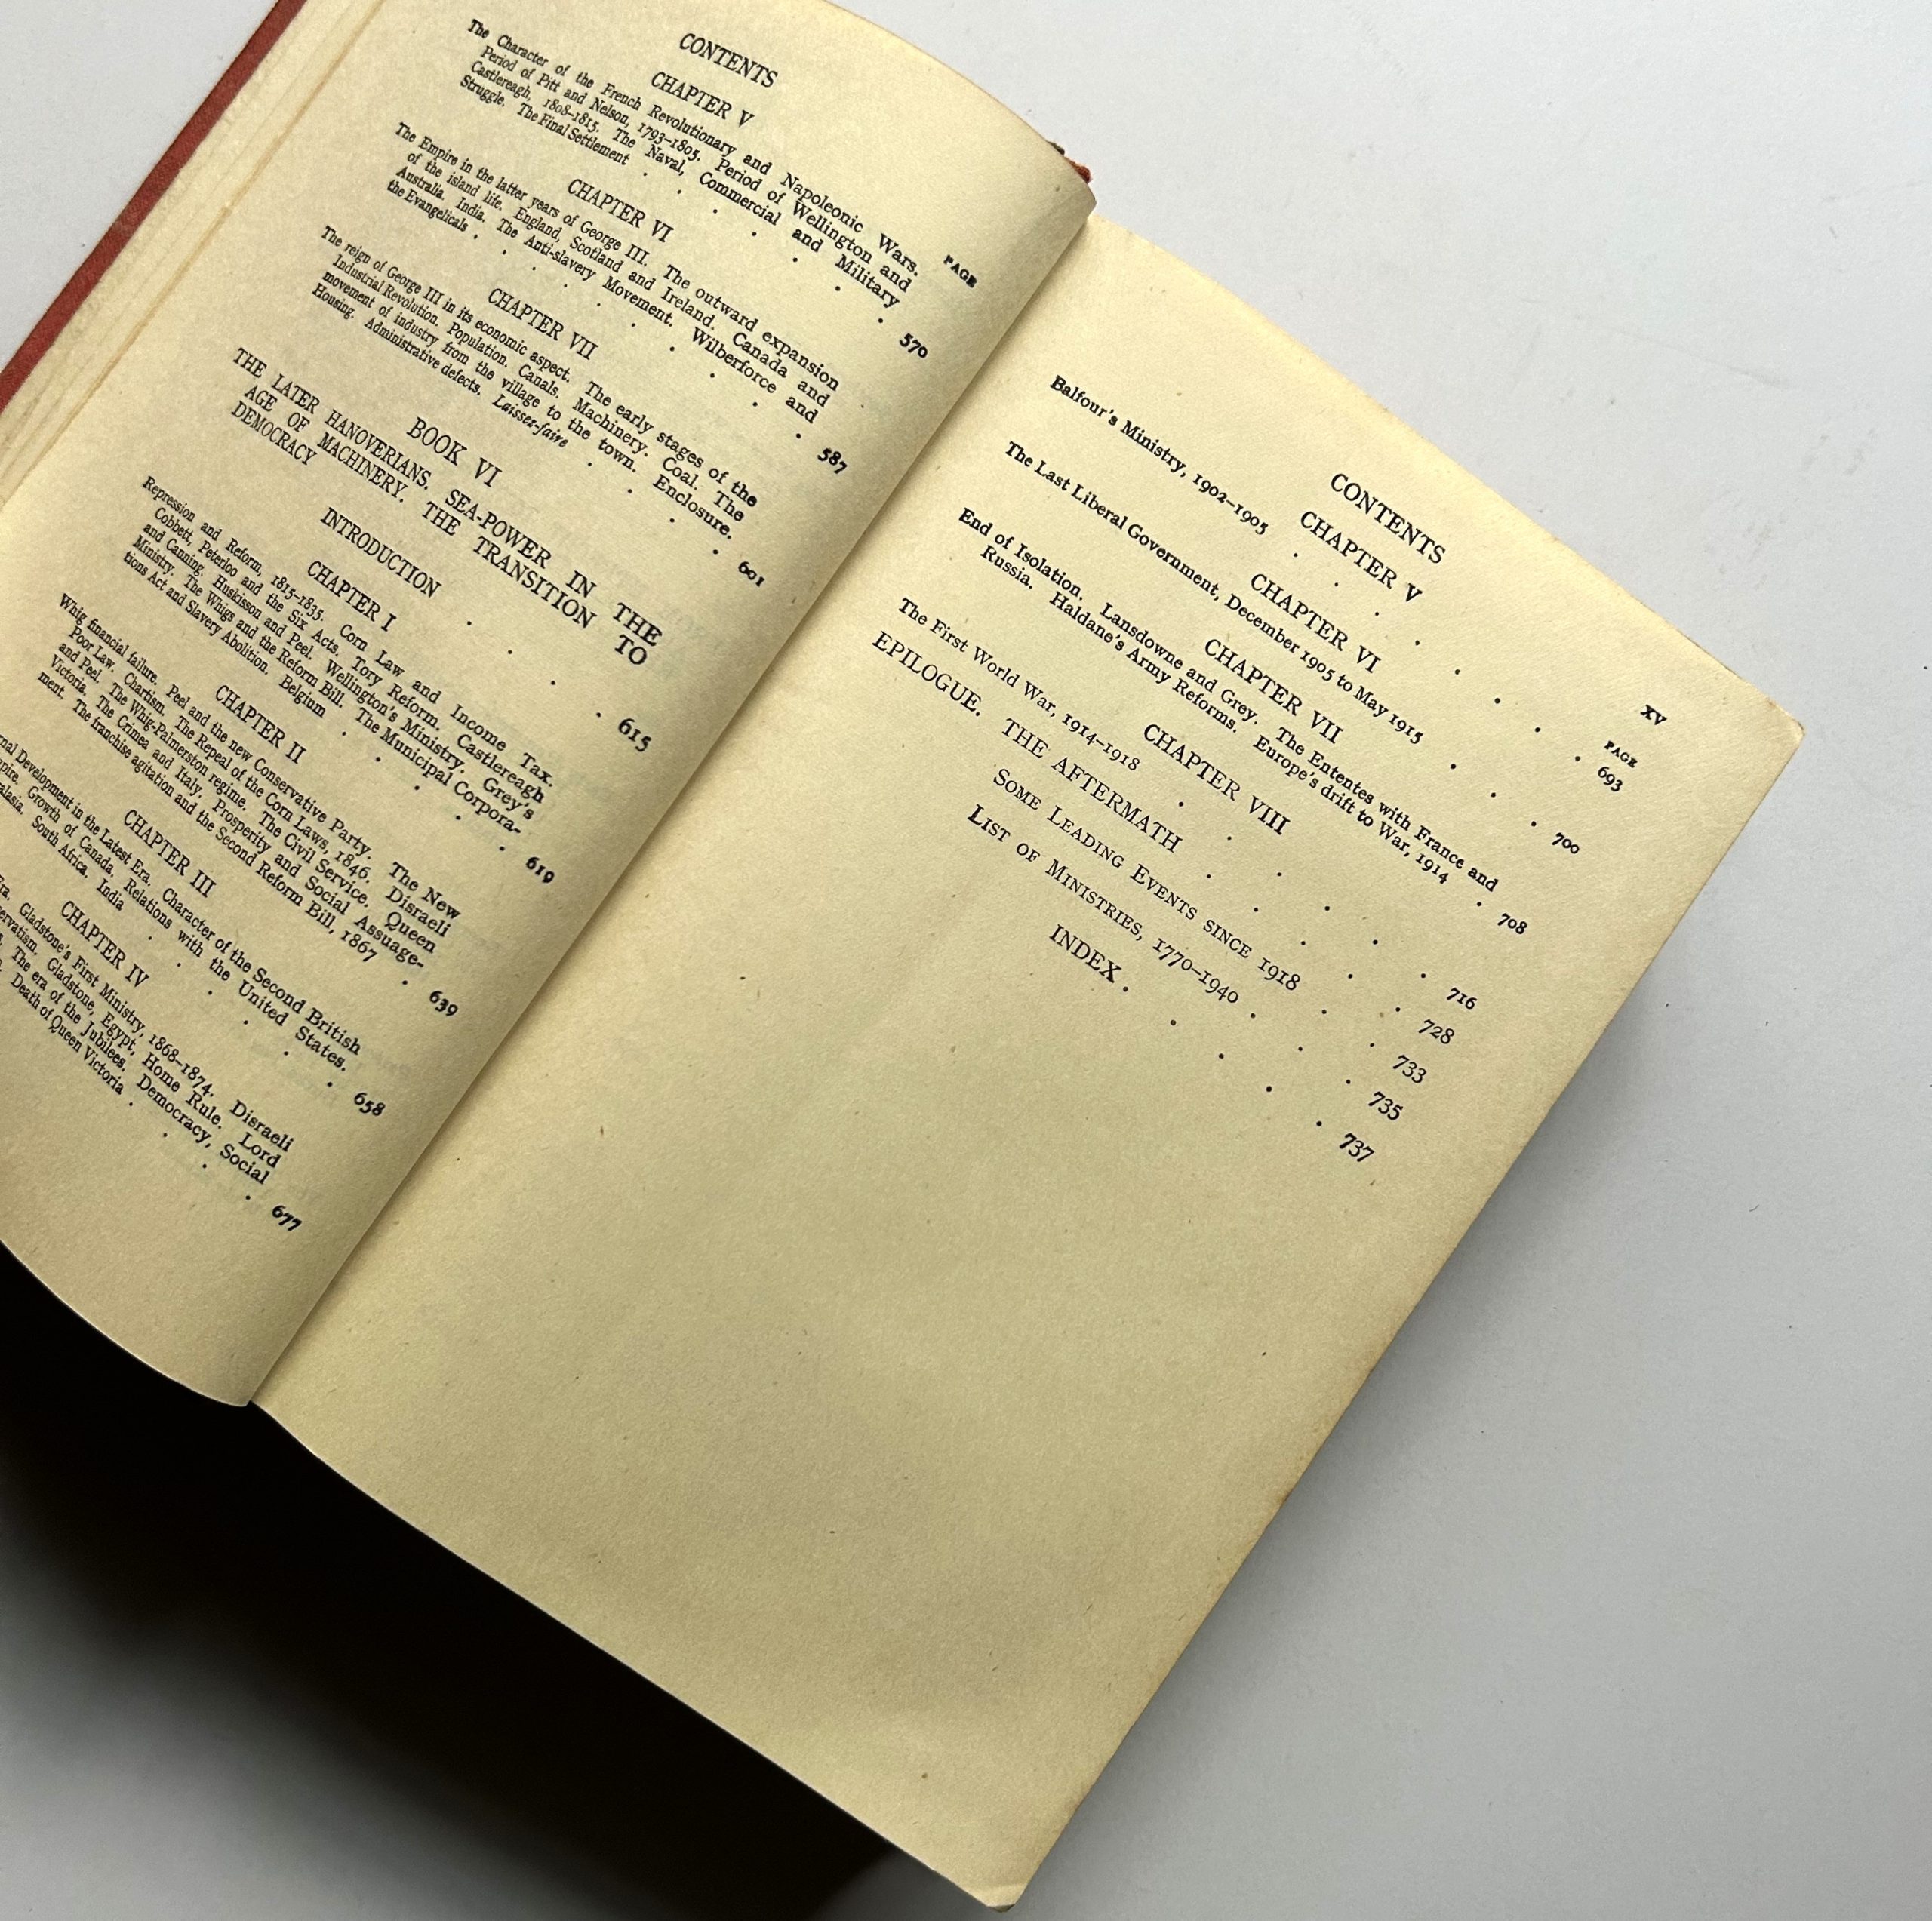 CONTENTS
CHAPTER V
PAGE
The Character of the French Revolutionary and Napoleonic Wars.
Period of Pitt and Nelson, 1793–1805. Period of Wellington and
Castlereagh, 1808–1815. The Naval, Commercial and Military
Struggle. The Final Settlement . . . . . . . 570
CHAPTER VI
The Empire in the latter years of George III. The outward expansion
of the island life. England, Scotland and Ireland. Canada and
Australia. India. The Anti-slavery Movement. Wilberforce and
the Evangelicals . . . . . . . . . 587
CHAPTER VII
The reign of George III in its economic aspect. The early stages of the
Industrial Revolution. Population. Canals. Machinery. Coal. The
movement of industry from the village to the town. Enclosure.
Housing. Administrative defects. Laissez-faire . . . . 601
BOOK VI
THE LATER HANOVERIANS. SEA-POWER IN THE
AGE OF MACHINERY. THE TRANSITION TO
DEMOCRACY
INTRODUCTION . . . . 615
CHAPTER I
Repression and Reform, 1815–1835. Corn Law and Income Tax.
Cobbett, Peterloo and the Six Acts. Tory Reform. Castlereagh
and Canning. Huskisson and Peel. Wellington's Ministry. Grey's
Ministry. The Whigs and the Reform Bill. The Municipal Corpora-
tions Act and Slavery Abolition. Belgium . . . . . 619
CHAPTER II
Whig financial failure. Peel and the new Conservative Party. The New
Poor Law. Chartism. The Repeal of the Corn Laws, 1846. Disraeli
and Peel. The Whig-Palmerston regime. The Civil Service. Queen
Victoria. The Crimea and Italy. Prosperity and Social Assuage-
ment. The franchise agitation and the Second Reform Bill, 1867 . 639
CHAPTER III
Development in the Latest Era. Character of the Second British
Growth of Canada. Relations with the United States.
South Africa. India . . . . . . 658
CHAPTER IV
Gladstone's First Ministry, 1868–1874. Disraeli
Gladstone, Egypt, Home Rule. Lord
The era of the Jubilees. Democracy, Social
Death of Queen Victoria . . . . 677
CONTENTS xv
CHAPTER V
PAGE
Balfour's Ministry, 1902–1905 . . . . . . . . 693
CHAPTER VI
The Last Liberal Government, December 1905 to May 1915 . . . 700
CHAPTER VII
End of Isolation. Lansdowne and Grey. The Ententes with France and
Russia. Haldane's Army Reforms. Europe's drift to War, 1914 . 708
CHAPTER VIII
The First World War, 1914–1918 . . . . . . . 716
EPILOGUE. THE AFTERMATH . . . . . . 728
SOME LEADING EVENTS SINCE 1918 . . . 733
LIST OF MINISTRIES, 1770–1940 . . . 735
INDEX . . . . . 737